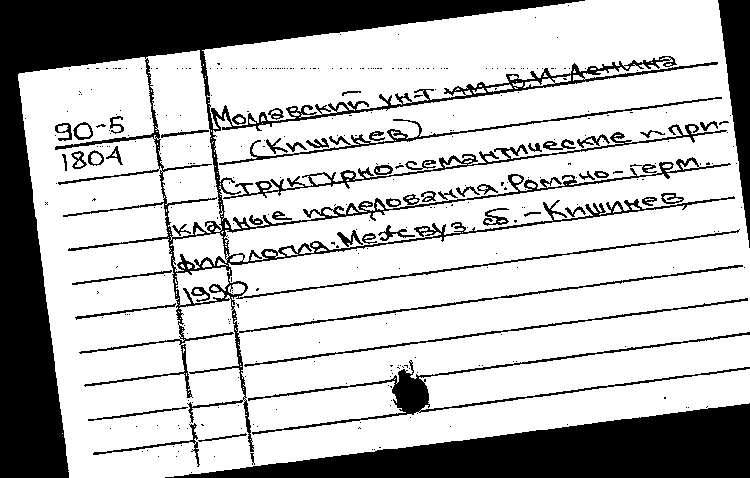 90-5
1804
Молдавский ун-т им. В.И. Ленина
(Кишинев)
Структурно-семантические и при-
кладные исследования: Романо-герм.
филология: Межвуз. сб. - Кишинев,
1990.